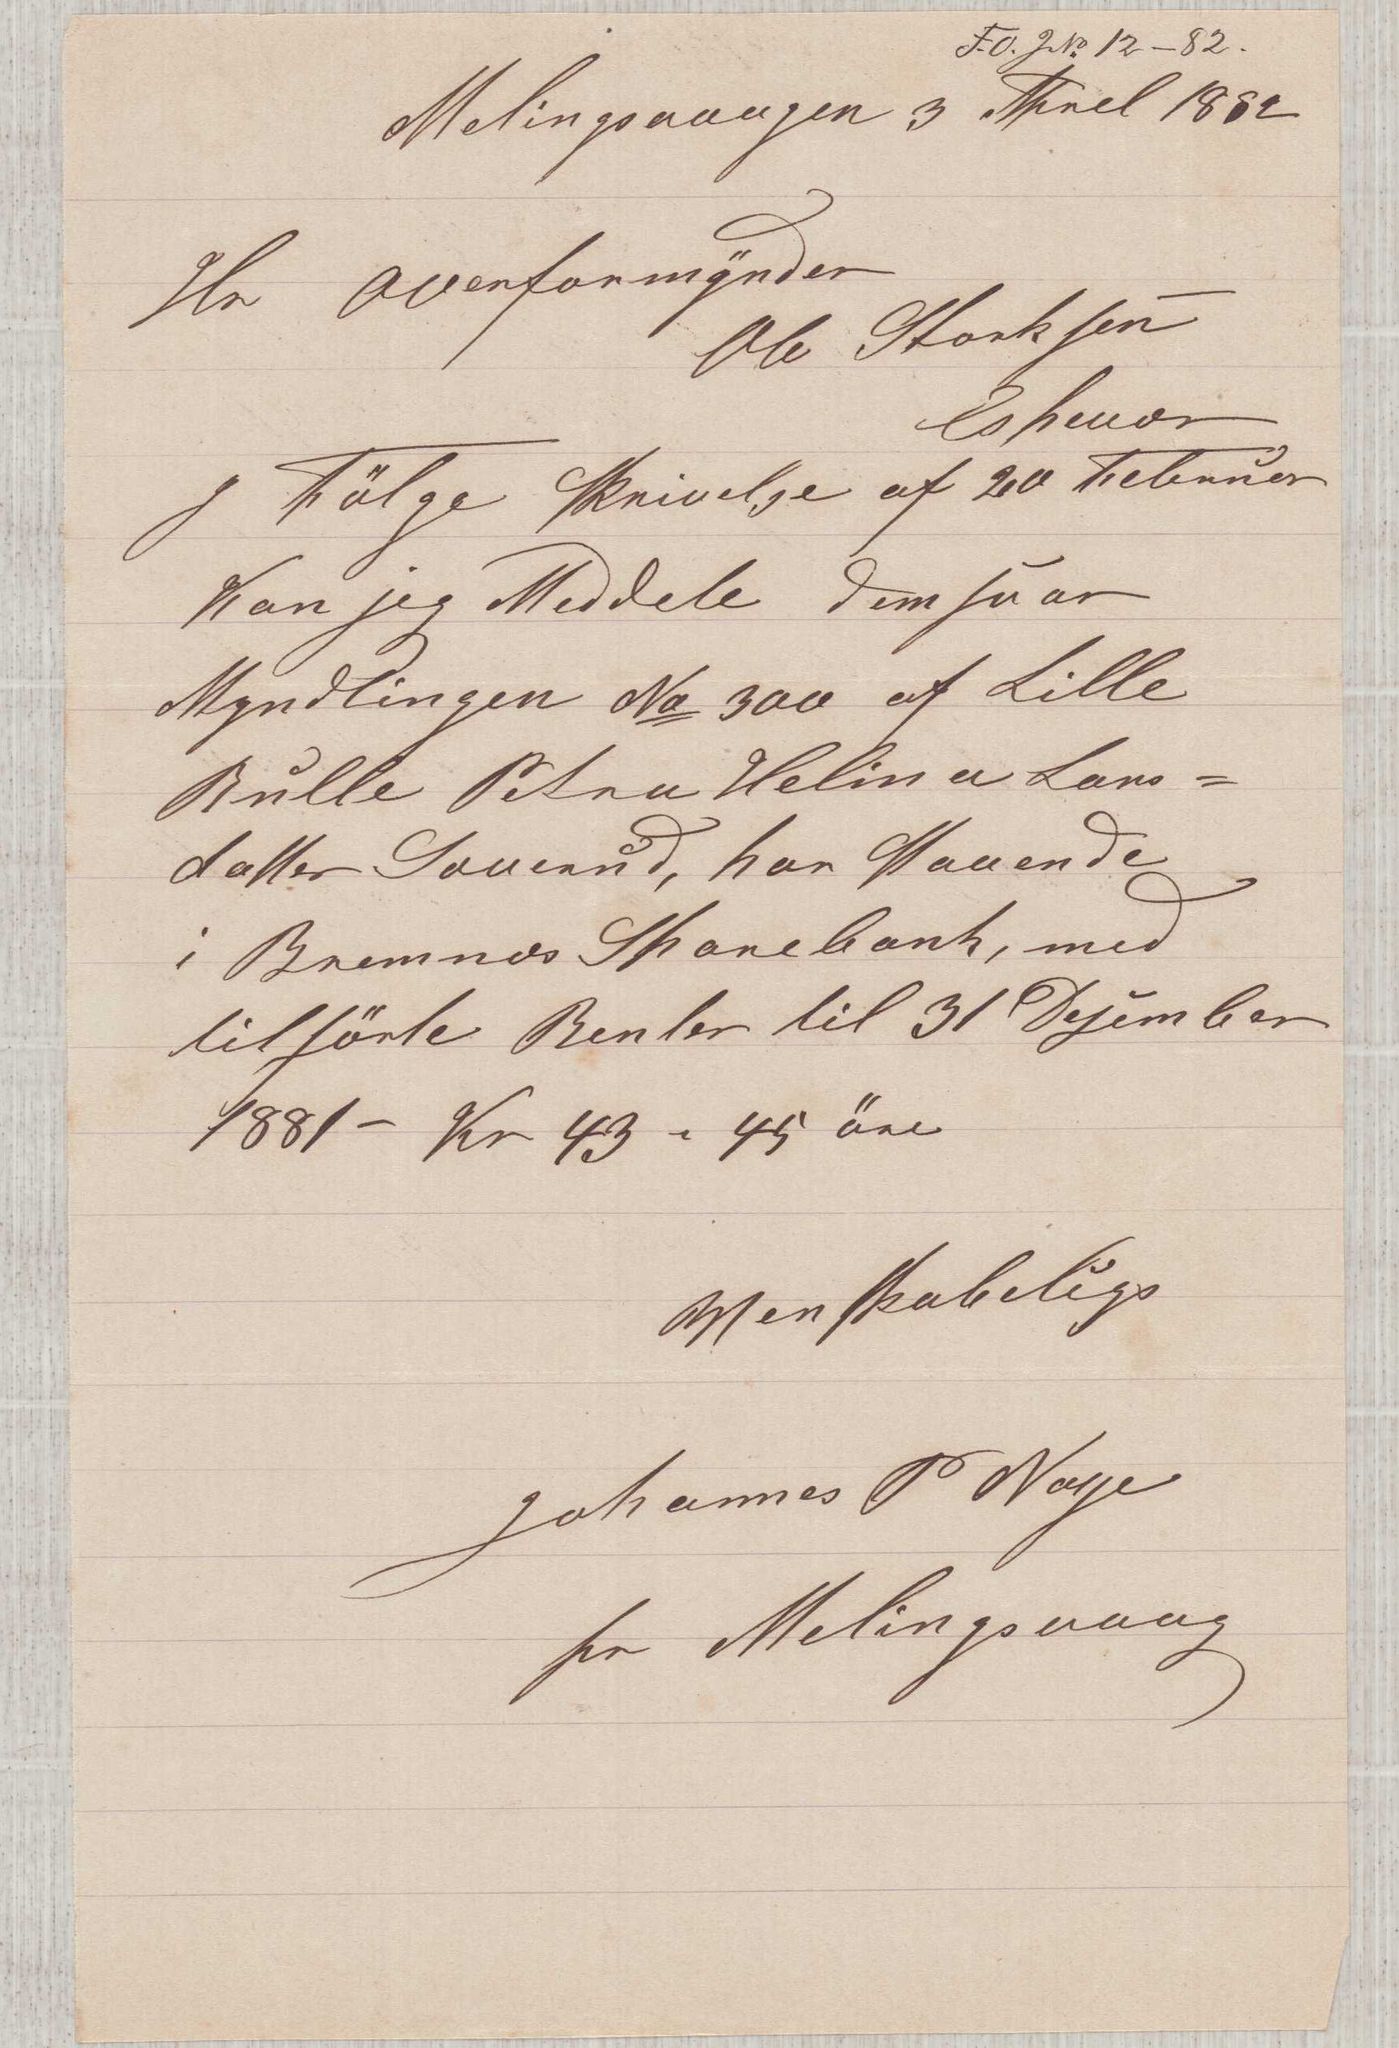 F.O. J№ 12-82.
Melingsvaagen 3 April 1882
Hr Overformÿnder
Ole Storksen
Espevær
J Fölge Skrivelse af 20 Februer
Kan jeg Meddele dem svar
Myndlingen No 300 af Lille
Rulle Petra Helina Lars=
datter Soverud, har Staaende
i Bremnes Sparebank, med
tilförte Renter til 31 Desember
1881 - Kr 43 " 45 öre
Wenskabeligs
Johannes P
pr Melingsvaag